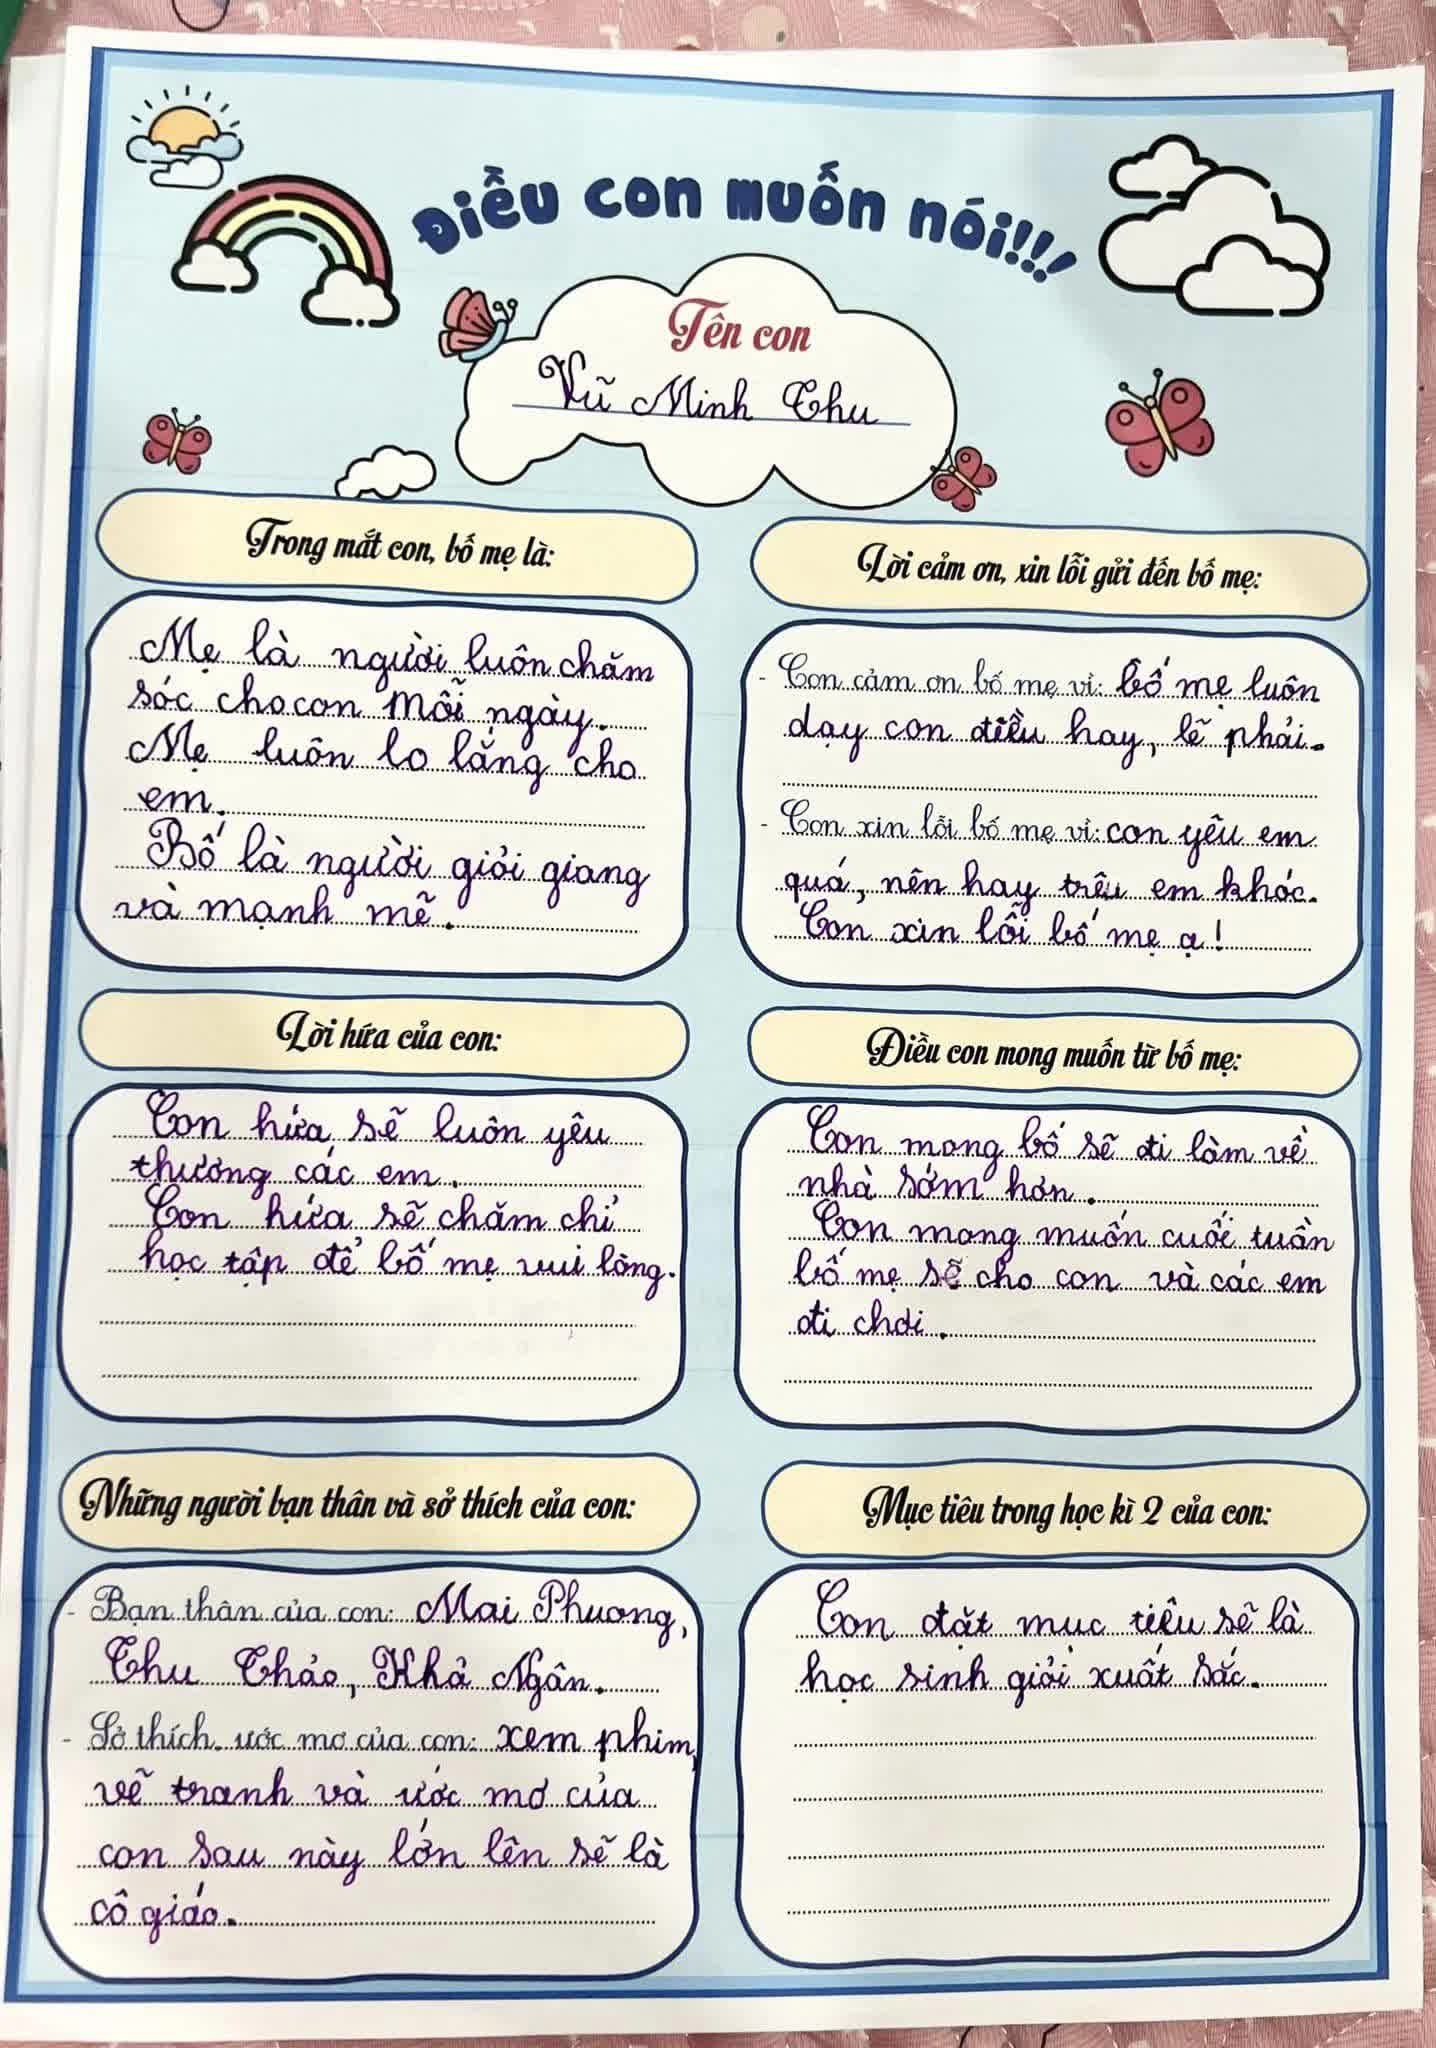 Điều con muốn nói!!!
Tên con
Vũ Minh Thu
Trong mắt con, bố mẹ là:
Mẹ là người luôn chăm
sóc cho con mỗi ngày.
Mẹ luôn lo lắng cho
em.
Bố là người giỏi giang
và mạnh mẽ.
Lời cảm ơn, xin lỗi gửi đến bố mẹ:
- Con cảm ơn bố mẹ vì: bố mẹ luôn
dạy con điều hay, lẽ phải.
- Con xin lỗi bố mẹ vì: con yêu em
quá, nên hay trêu em khóc.
Con xin lỗi bố mẹ ạ!
Lời hứa của con:
Con hứa sẽ luôn yêu
thương các em.
Con hứa sẽ chăm chỉ
học tập để bố mẹ vui lòng.
Điều con mong muốn từ bố mẹ:
Con mong bố sẽ đi làm về
nhà sớm hơn.
Con mong muốn cuối tuần
bố mẹ sẽ cho con và các em
đi chơi.
Những người bạn thân và sở thích của con:
- Bạn thân của con: Mai Phương,
Thu Thảo, Khả Ngân.
- Sở thích, ước mơ của con: xem phim,
vẽ tranh và ước mơ của
con sau này lớn lên sẽ là
cô giáo.
Mục tiêu trong học kì 2 của con:
Con đặt mục tiêu sẽ là
học sinh giỏi xuất sắc.